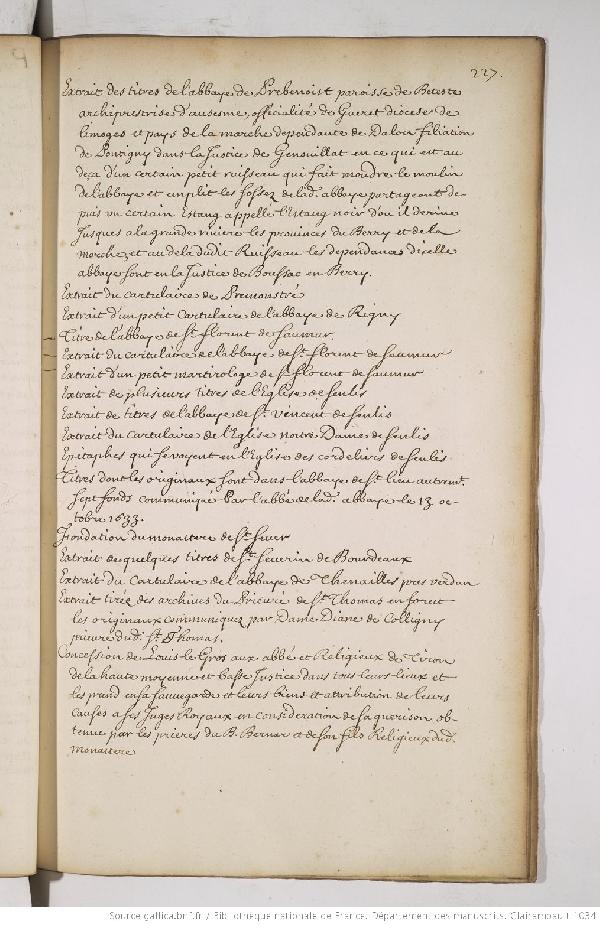 227.
Extrait des titres de l'abbaye de Prebenoist paroisse de Beteste
archiprestrise d'ausesme, officialité de Gueret diocese de
limoges et pays de la marche dependance de Dalon filiation
de Pontigny dans la Justice de Genouillat en ce qui est au
deça d'un certain petit ruisseau qui fait moudre le moulin
de l'abbaye et emplit les fossez de lad. abbaye partageant de
puis un certain Estang appellé l'Estang noir d'ou il derive
Jusques a la grande riviere les provinces du Berry et de la
marche, et au dela dudit Ruisseau les dependances d'icelle
abbaye sont en la Justice de Boussac en Berry.
Extrait du cartulaire de Premonstré
Extrait d'un petit Cartulaire de l'abbaye de Rigny
Titre de l'abbaye de St. florent de saumur
Extrait du cartulaire de l'abbaye de St. florent de saumur
Extrait d'un petit martirologe de St. florent de saumur
Extrait de plusieurs titres de l'Eglise de senlis
Extrait de titres de l'abbaye de St. vincent de senlis
Extrait du cartulaire de l'Eglise nostre Dame de senlis
Epitaphes qui se voyent en l'Eglise des cordeliers de senlis
Titres dont les originaux sont dans l'abbaye de St. lieu autremt.
sept fonds communiqué par l'abbé de lad. abbaye le 13 oc-
tobre 1633.
Fondation du monastere de St. sever
Extrait de quelques titres de St. severin de Bourdeaux
Extrait du Cartulaire de l'abbaye de Thenailles pres verdun
Extrait tirez des archives du Prieuré de St. Thomas en forest
les originaux communiquez par Dame Diane de Colligny
prieure dud. St. Thomas.
Concession de Louis le Gros aux abbé et Religieux de Tiron
de la haute moyenne et basse Justice dans tous leurs lieux et
les prend en sa sauvegarde et leurs biens et atribution de leurs
causes a ses Juges Royaux en consideration de sa guerison ob-
tenue par les prieres du B. Bernar et de son fils Religieux dud.
monastere
Source gallica.bnf.fr / Bibliothèque nationale de France. Département des manuscrits. Clairambault 1034